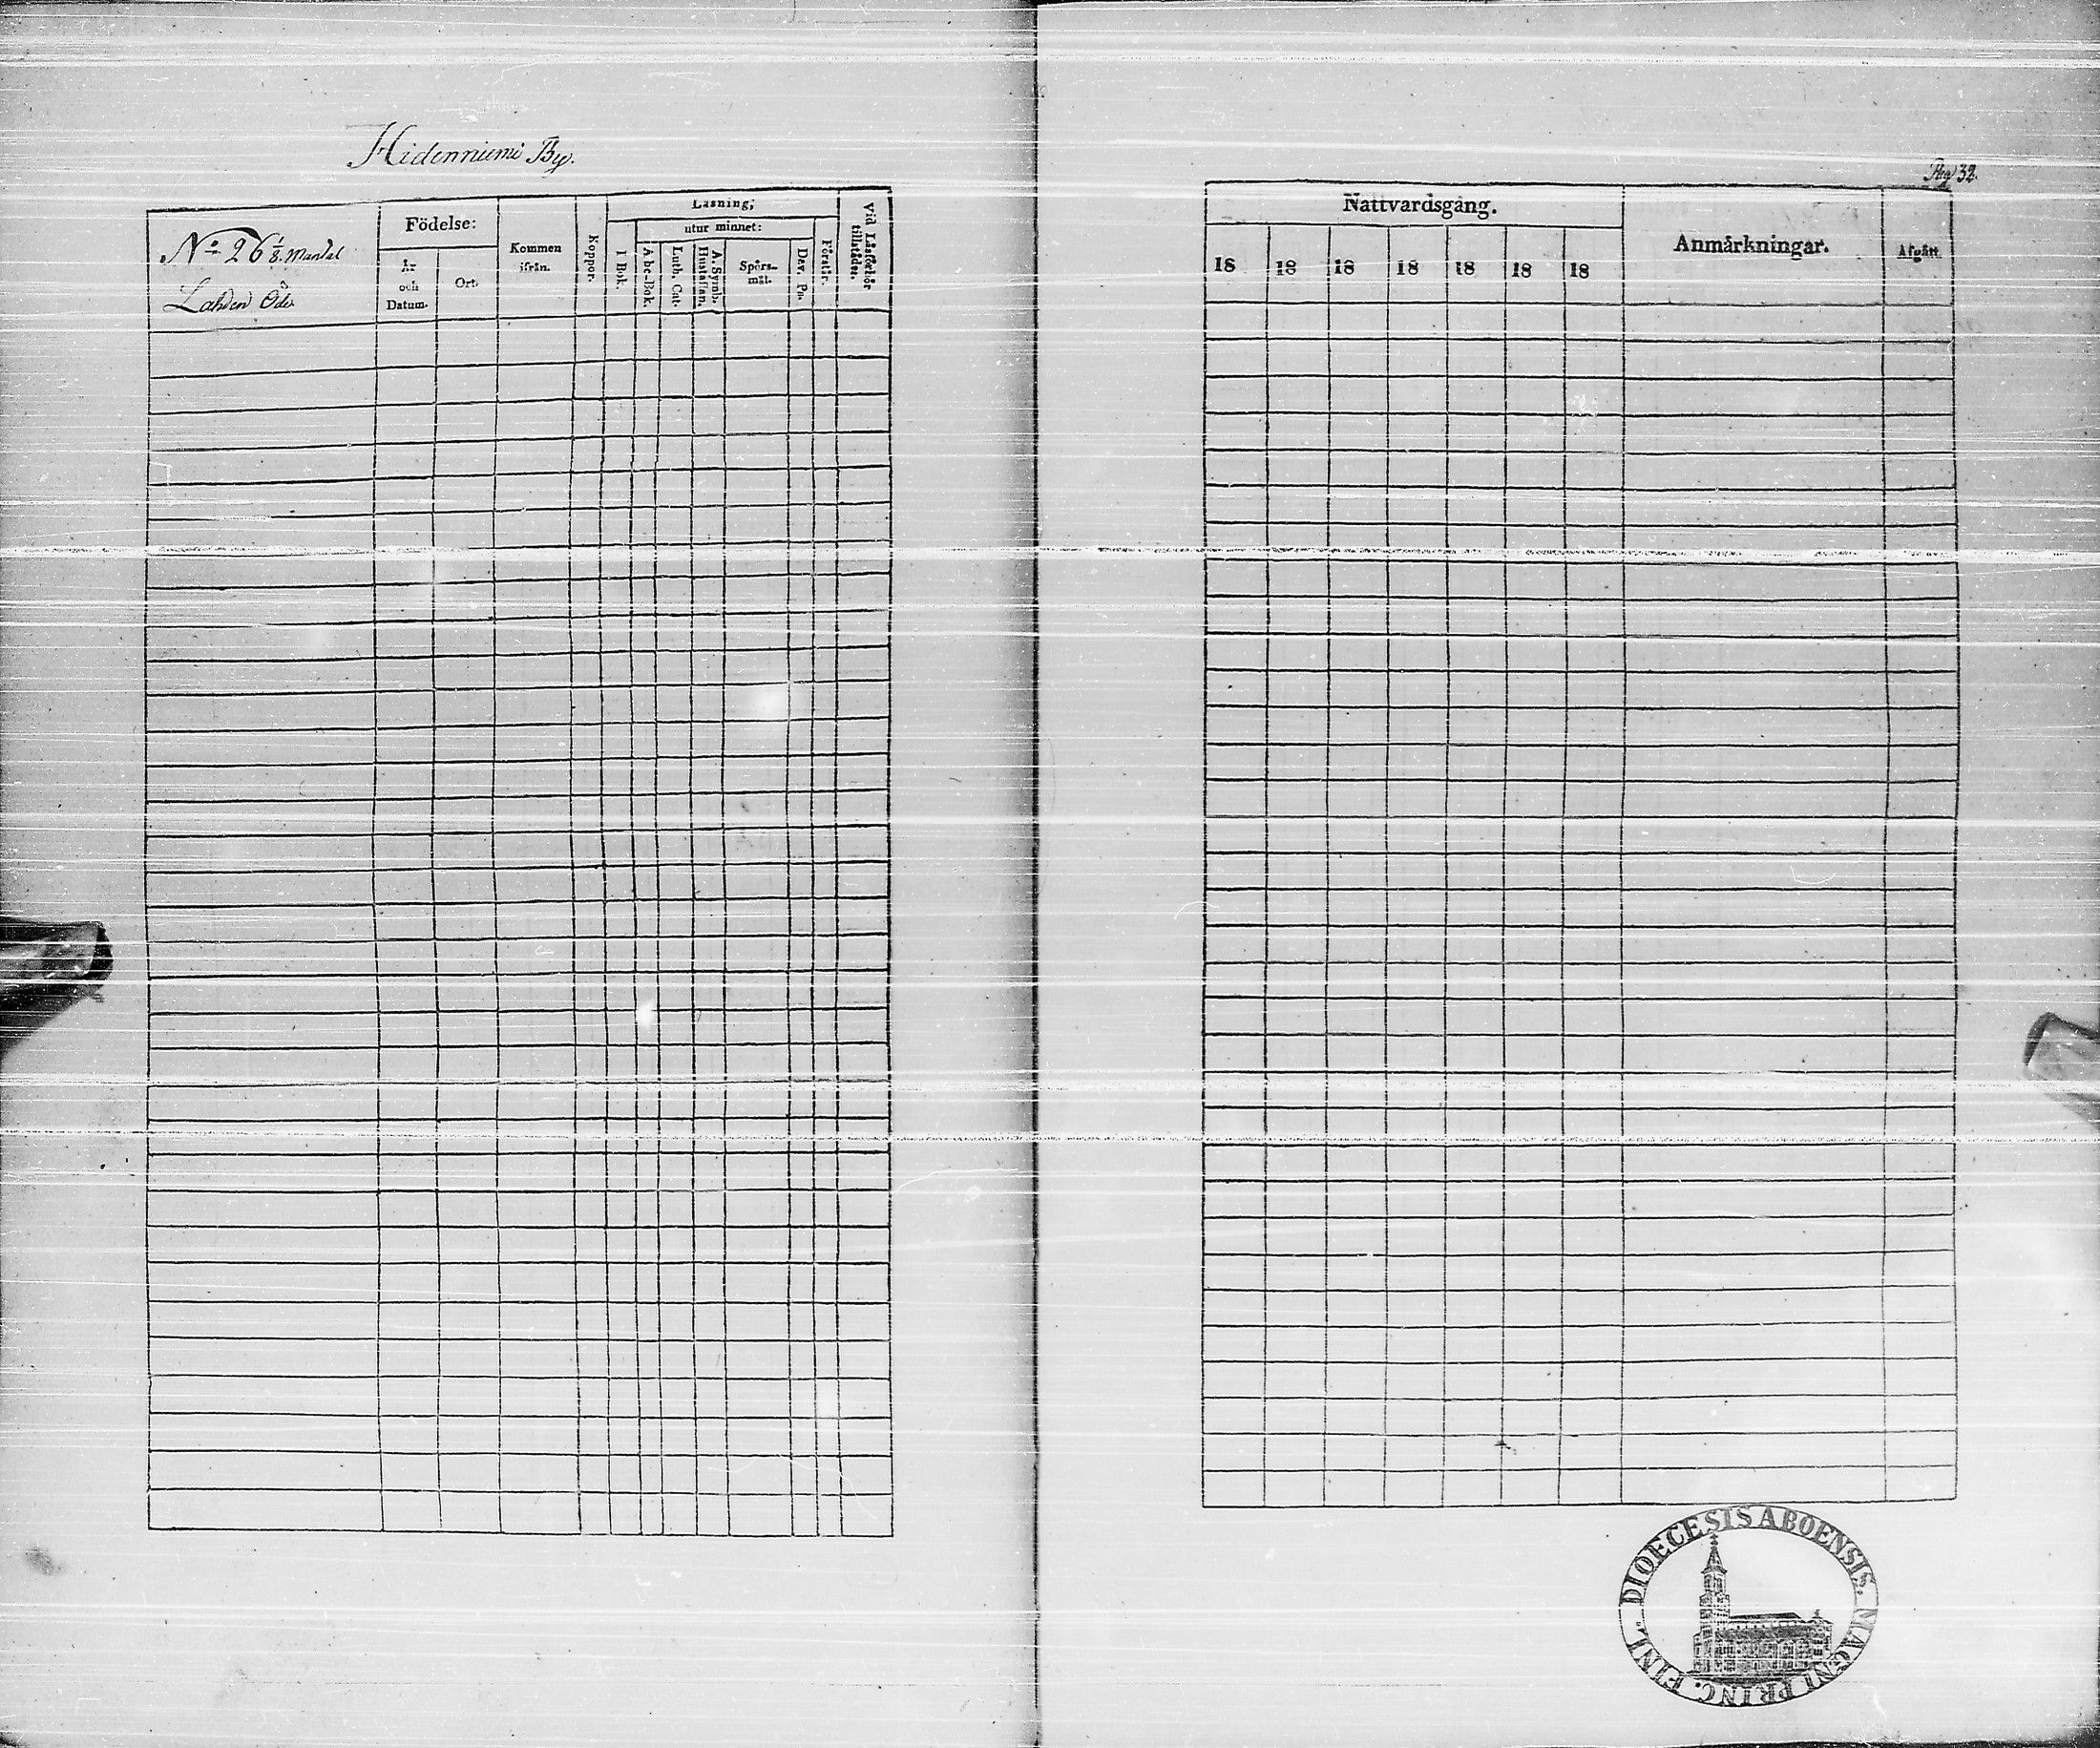 Hidenniemi By.
No 26 1/8. Mantal
Lahden Öde
Födelse:
År och Datum.
Ort.
Kommen ifrån.
Koppor.
Läsning;
I Bok.
utur minnet:
Abc-Bok.
Luth. Cat.
A. Symb. Hustaflan.
Spörsmål.
Dav. Ps.
Förstår.
Vid Läsförhör tillstädes.
Pag 32.
Nattvardsgång.
18 18 18 18 18 18 18
Anmärkningar.
Afgått
DIOECESIS ABOENSIS. MAGNI PRINC. FINL.